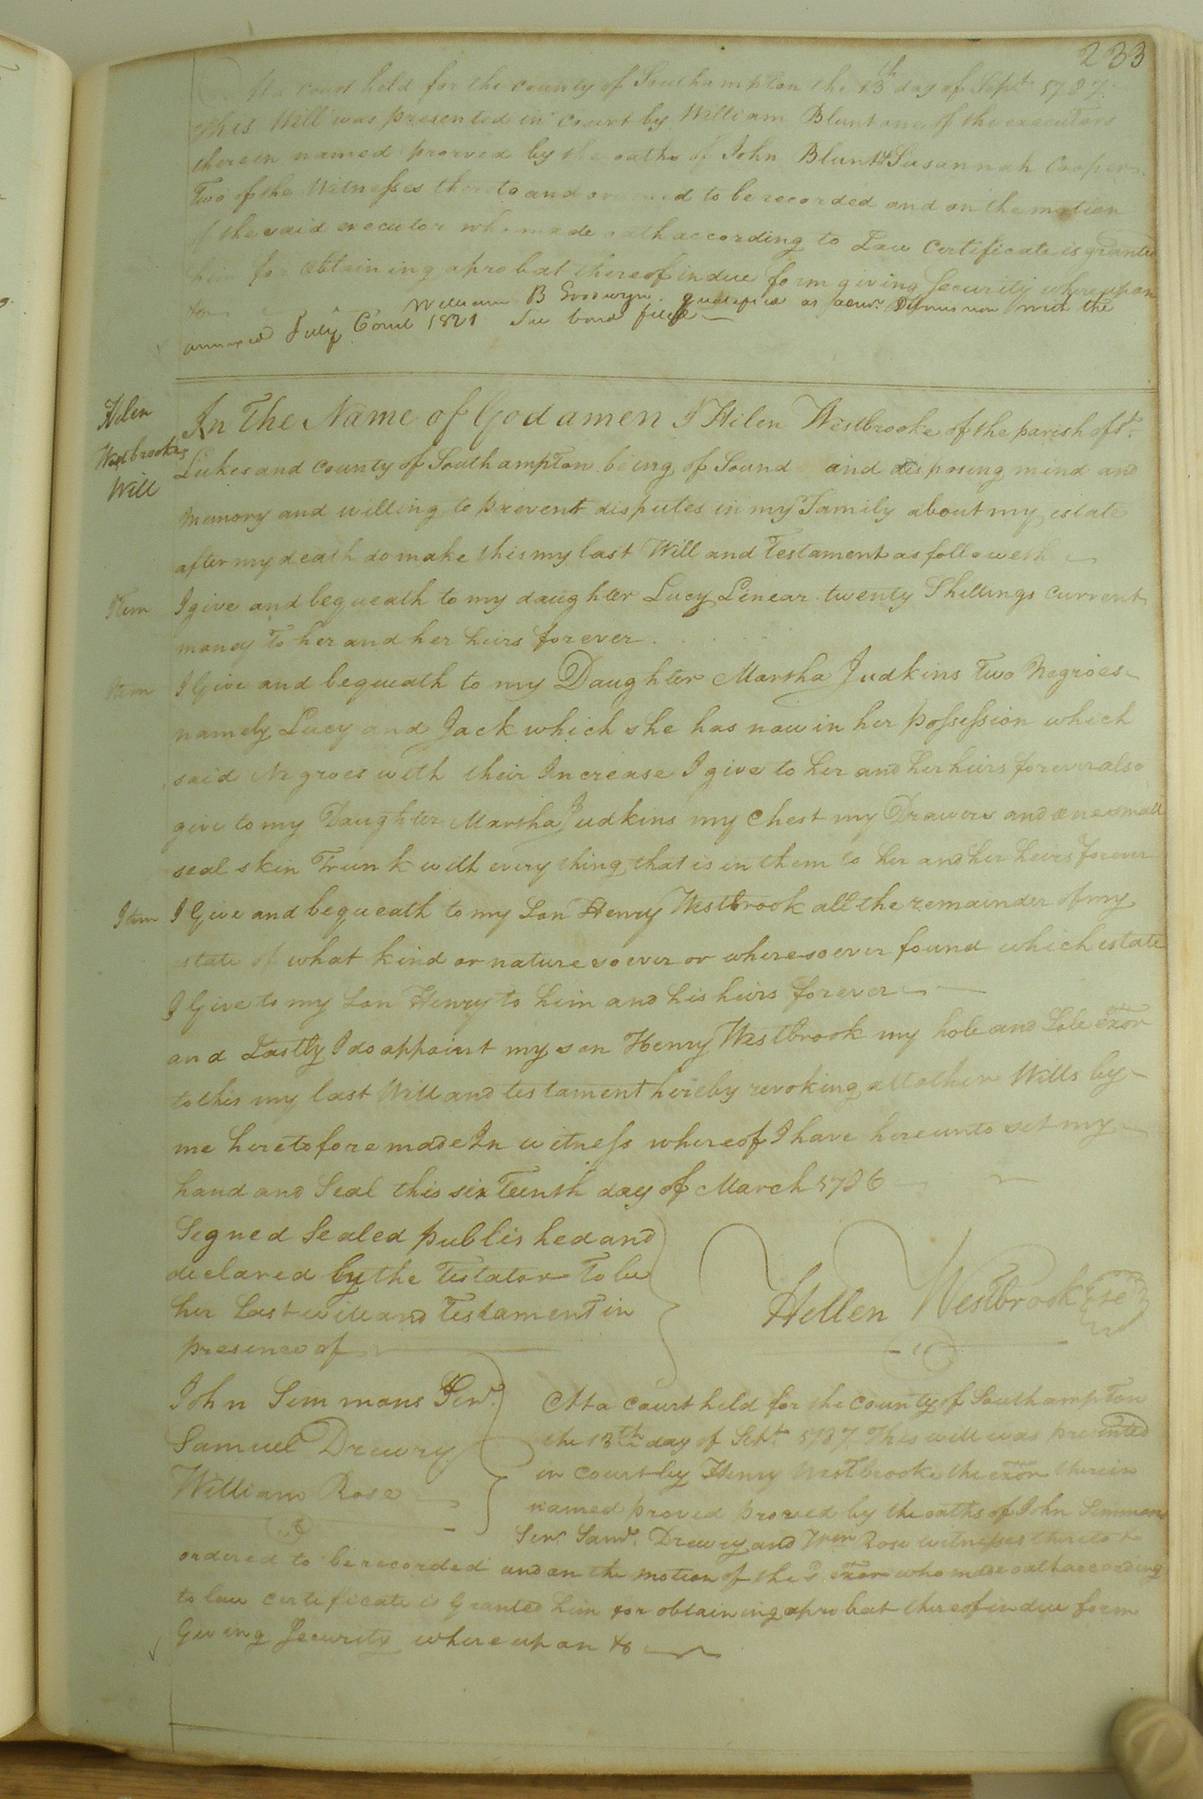 233
At a court held for the county of Southampton the 13th day of Sept 1787.
This Will was presented in court by William Blunt one of the executors
therein named proved by the oaths of John Blunt & Susannah Cooper
Two of the Witnesses thereto and ordered to be recorded and on the motion
of the said executor who made oath according to Law Certificate is granted
him for obtaining aprobat thereof in due form giving Security whereupon
William B Goodwyn qualified as with the
annexed July Court 1821 See bond filed
Hilen
Westbrookes
Will
In The Name of God amen I Hilen Westbrooke of the parish of St.
Lukes and county of Southampton being of Sound and disposing mind and
memory and willing to prevent disputes in my Family about my estate
after my death do make this my last Will and Testament as followeth
Item I give and bequeath to my daughter Lucy Linear twenty Shillings current
money To her and her heirs forever.
Item I Give and bequeath to my Daughter Martha Judkins Two Negroes
namely Lucy and Jack which she has now in her possession which
said Negroes with their Increase I give to her and her heirs forever also
give to my Daughter Martha Judkins my Chest my Drawers and one small
seal skin Trunk with every thing that is in them to her and her heirs forever
Item I Give and bequeath to my Son Henry Westbrook all the remainder of my
estate of what kind or nature soever or wheresoever found which estate
I Give to my Son Henry to him and his heirs forever
and Lastly I do appoint my son Henry Westbrook my hole and Sole exor
to this my last Will and testament hereby revoking all other Wills by
me heretofore made In witness whereof I have hereunto set my
hand and Seal this sixteenth day of March 1786
Signed Sealed published and
declared by the Testator To be
her Last will and Testament in
presence of
Hellen Westbrook
John Simmons Senr.
Samuel Drewry
William Rose
At a court held for the county of Southampton
the 13th day of Sept. 1787. This will was presented
in court by Henry Westbrooke the exor therein
named proved proved by the oaths of John Simmons
Senr. Saml. Drewry and Wm Rose witnesses thereto &
ordered to be recorded and on the motion of the sd. exor who made oath according
to law certificate is Granted him for obtaining aprobat thereof in due form
Giveng Security where upon &